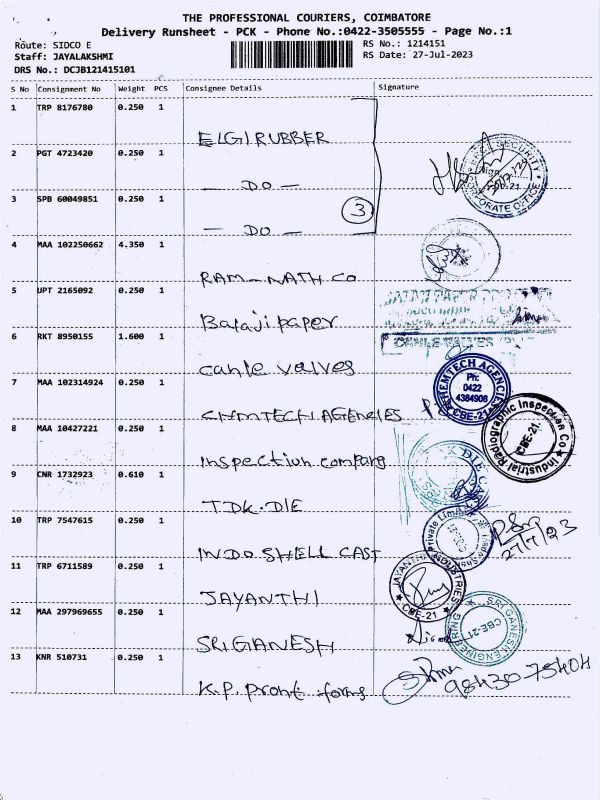 THE PROFESSIONAL COURIERS, COIMBATORE
Delivery Runsheet - PCK - Phone No.:0422-3505555 - Page No.:1
Route: SIDCO E
RS No.: 1214151
Staff: JAYALAKSHMI
RS Date: 27-Jul-2023
DRS No.: DCJB121415101
S No Consignment No Weight PCS Consignee Details Signature
1 TRP 8176780 0.250 1
ELGI RUBBER
2 PGT 4723420 0.250 1
SECURITY
CORPORATE OFFICE
— DO —
3 SPB 60049851 0.250 1
3
— DO —
4 MAA 102250662 4.350 1
RAM-NATH CO
5 UPT 2165092 0.250 1
Balaji paper
6 RKT 8950155 1.600 1
Camle valves
7 MAA 102314924 0.250 1
CHEMTECH AGENCIES
Ph:
0422
4384908
CBE-21
CHMTECH AGENCIES
8 MAA 10427221 0.250 1
Industrial Radiographic Inspection Co
CBE-21.
Inspection company
9 CNR 1732923 0.610 1
DIE
TDK.DIE
10 TRP 7547615 0.250 1
Private Limited
27/7/23
INDO SHELL CAST
11 TRP 6711589 0.250 1
JAYANTHI INDUSTRIES
CBE-21
JAYANTHI
12 MAA 297969655 0.250 1
SRI GANESH ENGINEERING
CBE-21
SRI GANESH
13 KNR 510731 0.250 1
98430-75404
K.P. Pront forms